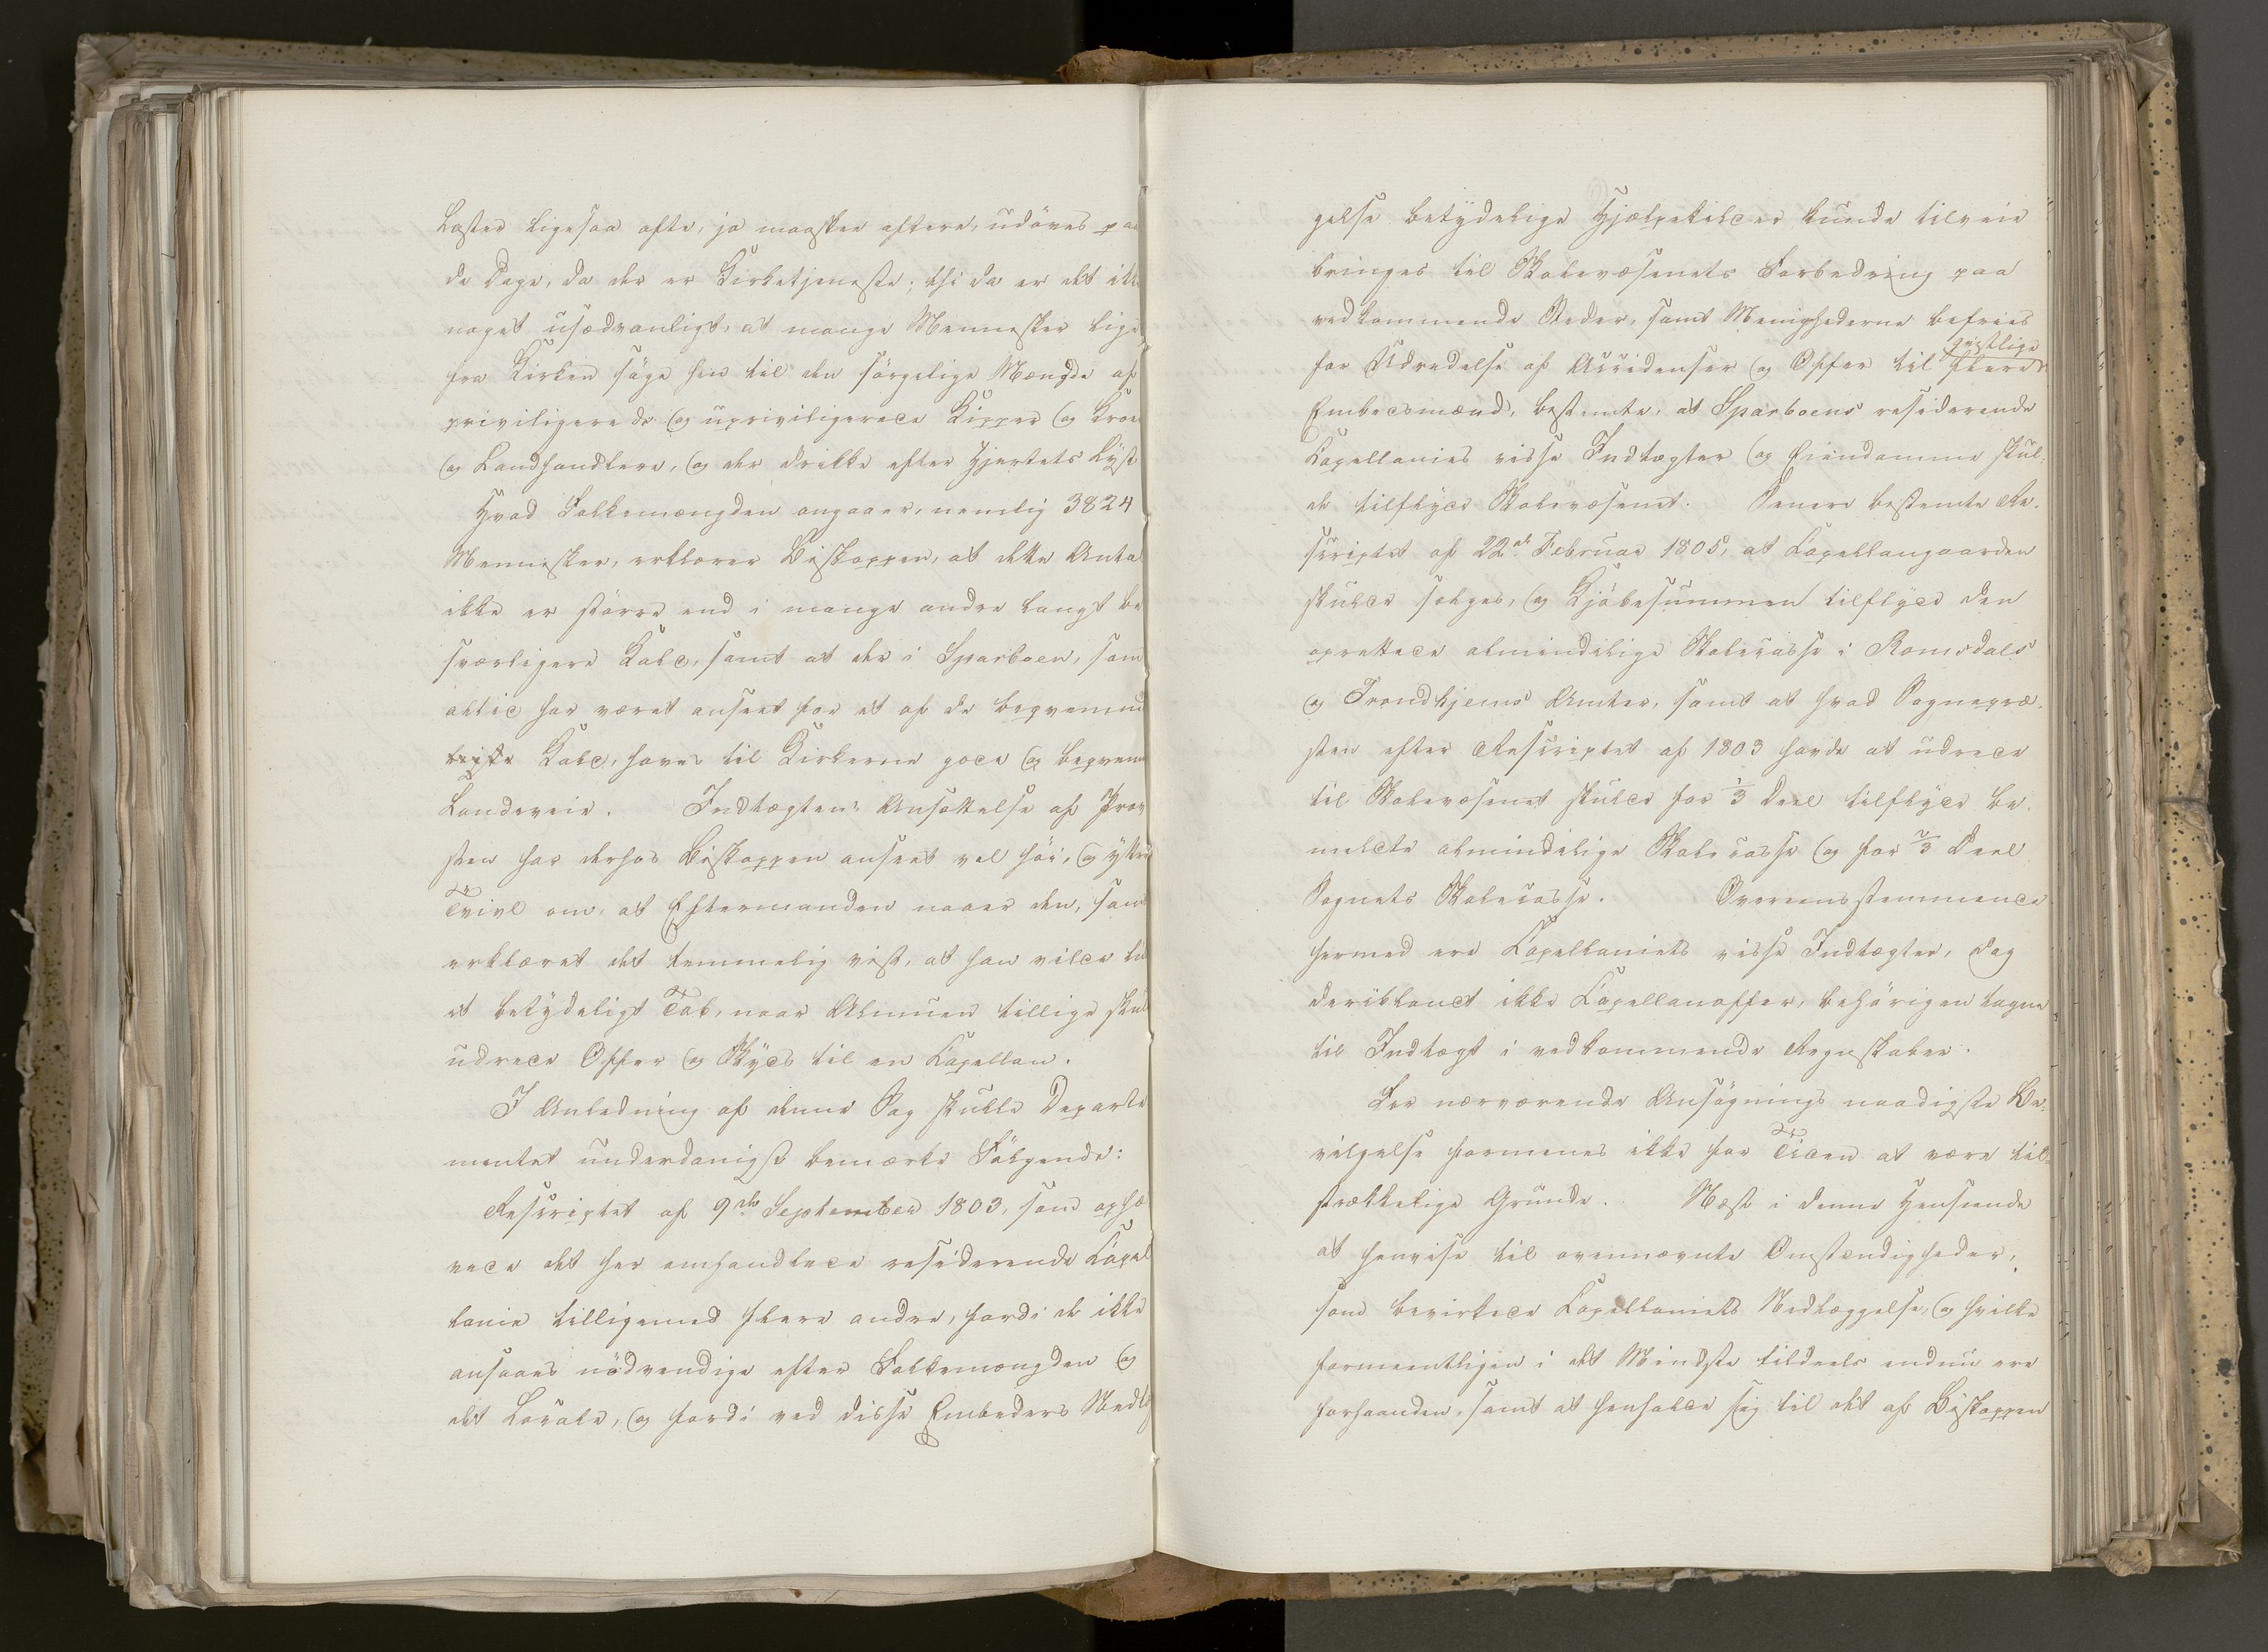 Laster ligesaa ofte, ja maaskee oftere, udöves paa
de Dage, da der er Kirketjeneste; thi da er det ikke
noget usædvanligt, at mange Mennesker lige
fra Kirken söge hen til den sörgelige Mængde af
priviligerede og upriviligerede Kipper og Kroe
og Landhandlere, og der drikke efter Hjertets Lyst
Hvad Folkemængden angaaer, nemlig 3824
Mennesker, erklærer Biskoppen, at dette Anta
ikke er större end i mange andre langt be
sværligere Kald, samt at der i Sparboen, som
altid har været anseet for et af de beqvemme
ligste Kald, haves til Kirkerne gode og beqvemme
Landeveie. Indtægtens Ansættelse af Prov
sten har derhos Biskoppen anseet vel höi, og yttret
Tvivl om, at Eftermanden naaer den, samt
erklæret det temmelig vist, at han vilde lide
et betydeligt Tab, naar Almuen tillige skul
udrede Offer og Skyds til en Kapellan.
I Anledning af denne Sag skulle Departe
mentet underdanigst bemærke Fölgende:
Rescriptet af 9de September 1803, som ophæ
vede det her omhandlede residerende Capel
lanie tilligemed flere andre, fordi de ikke
ansaaes nödvendige efter Folkemængden og
det Locale, og fordi ved disse Embeders Nedlæg
gelse betydelige Hjælpekilder kunde tilveie
bringes til Skolevæsenets Forbedring paa
vedkommende Steder, samt Menighederne befries
for Udredelse af Accidenser og Offer til flere geistlige
Embedsmænd, bestemte, at Sparboens residerende
Capellanies visse Indtægter og Eiendomme skul-
de tilflyde Skolevæsenet. Senere bestemte Re-
scriptet af 22de Februar 1805, at Capellangaarden
skulde sælges, og Kjöbesummen tilflyde den
oprettede almindelige Skolecasse i Romsdals
og Trondhjems Amter, samt at hvad Sognepræ-
sten efter Rescriptet af 1803 havde at udrede
til Skolevæsenet skulde for 1/3 Deel tilflyde be-
meldte almindelige Skolecasse og for 2/3 Deel
Sognets Skolecasse. Overeensstemmende
hermed ere Capellaniets visse Indtægter, dog
deriblandt ikke Capellanoffer, behörigen tagne
til Indtægt i vedkommende Regnskaber.
For nærværende Ansögnings naadigste Be-
vilgelse formenes ikke for Tiden at være til-
strækkelige Grunde. Næst i denne Henseende
at henvise til ovennævnte Omstændigheder,
som bevirkede Capellaniets Nedlæggelse, og hvilke
formeentligen i det Mindste tildeels endnu ere
forhaanden, samt at henholde sig til det af Biskoppen